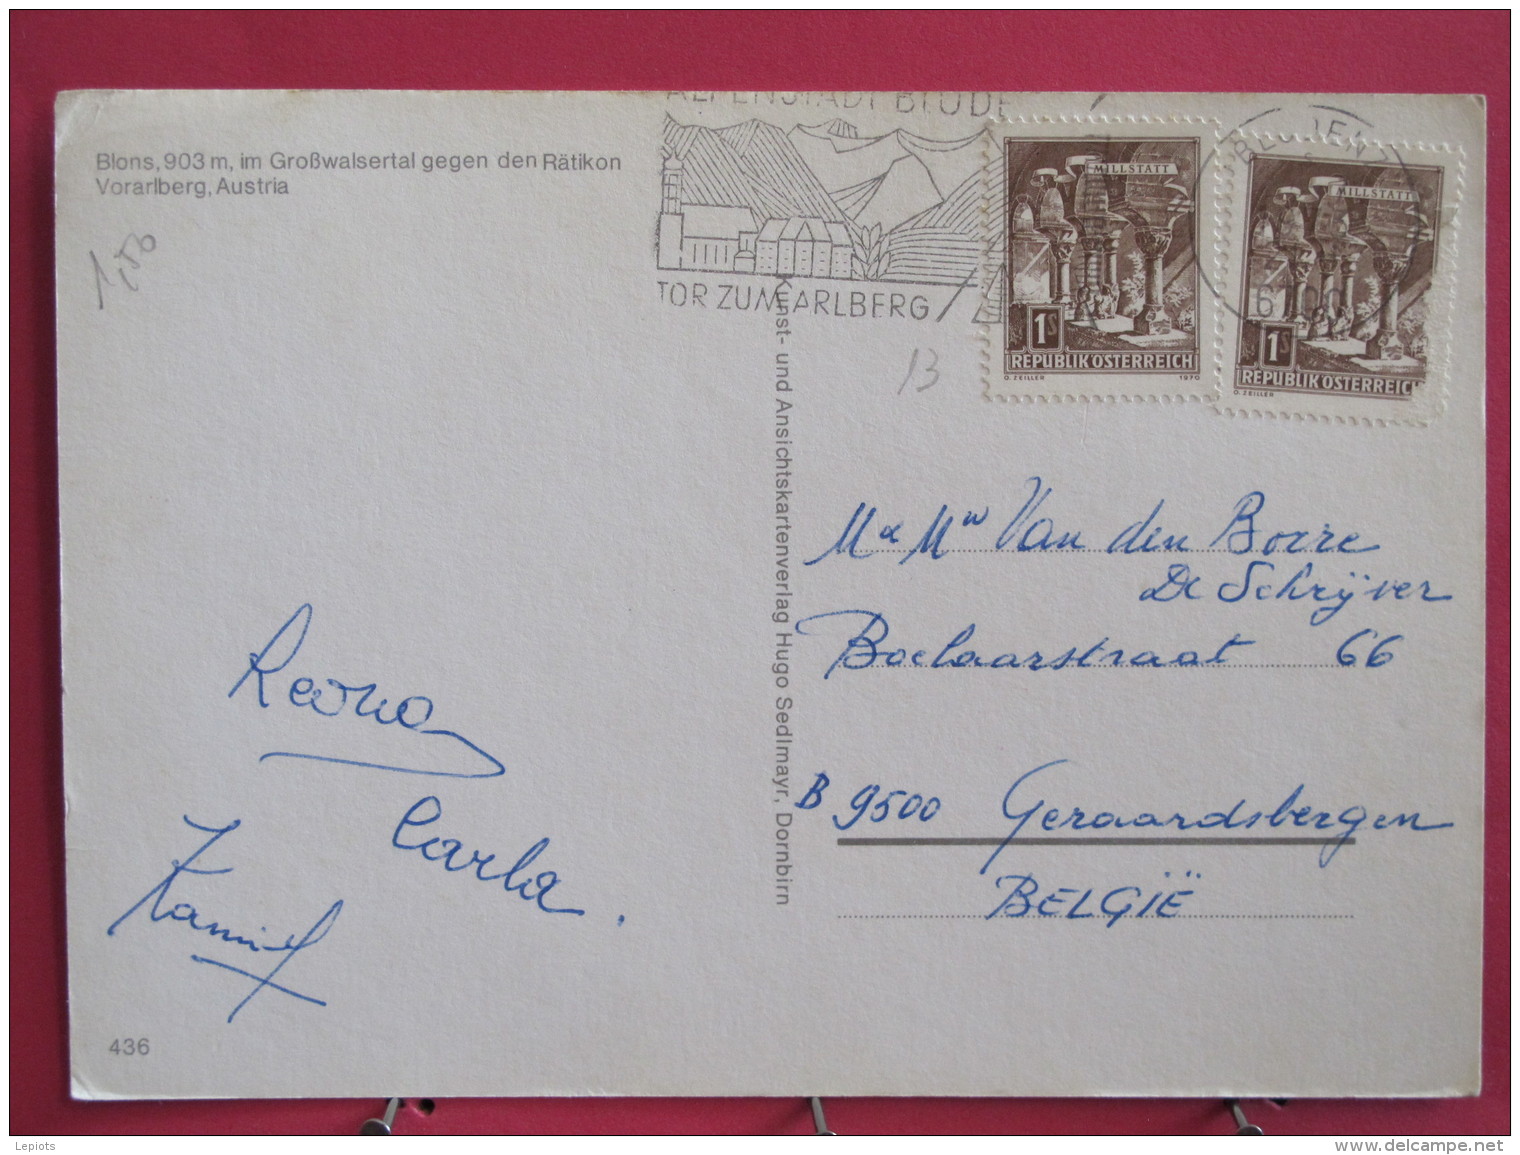 Blons, 903 m, im Großwalsertal gegen den Rätikon
Vorarlberg, Austria
1,50
ALPENSTADT BLUDE
TOR ZUM ARLBERG
BLUDENZ
MILLSTATT
1S
REPUBLIK ÖSTERREICH
O. ZEILLER 1970
MILLSTATT
1S
REPUBLIK ÖSTERREICH
O. ZEILLER
13
Kunst- und Ansichtskartenverlag Hugo Sedlmayr, Dornbirn
M & Mw Van den Borre
De Schrijver
Boelaarstraat 66
B 9500 Geraardsbergen
BELGIË
Carla.
436
Lepiots
www.delcampe.net